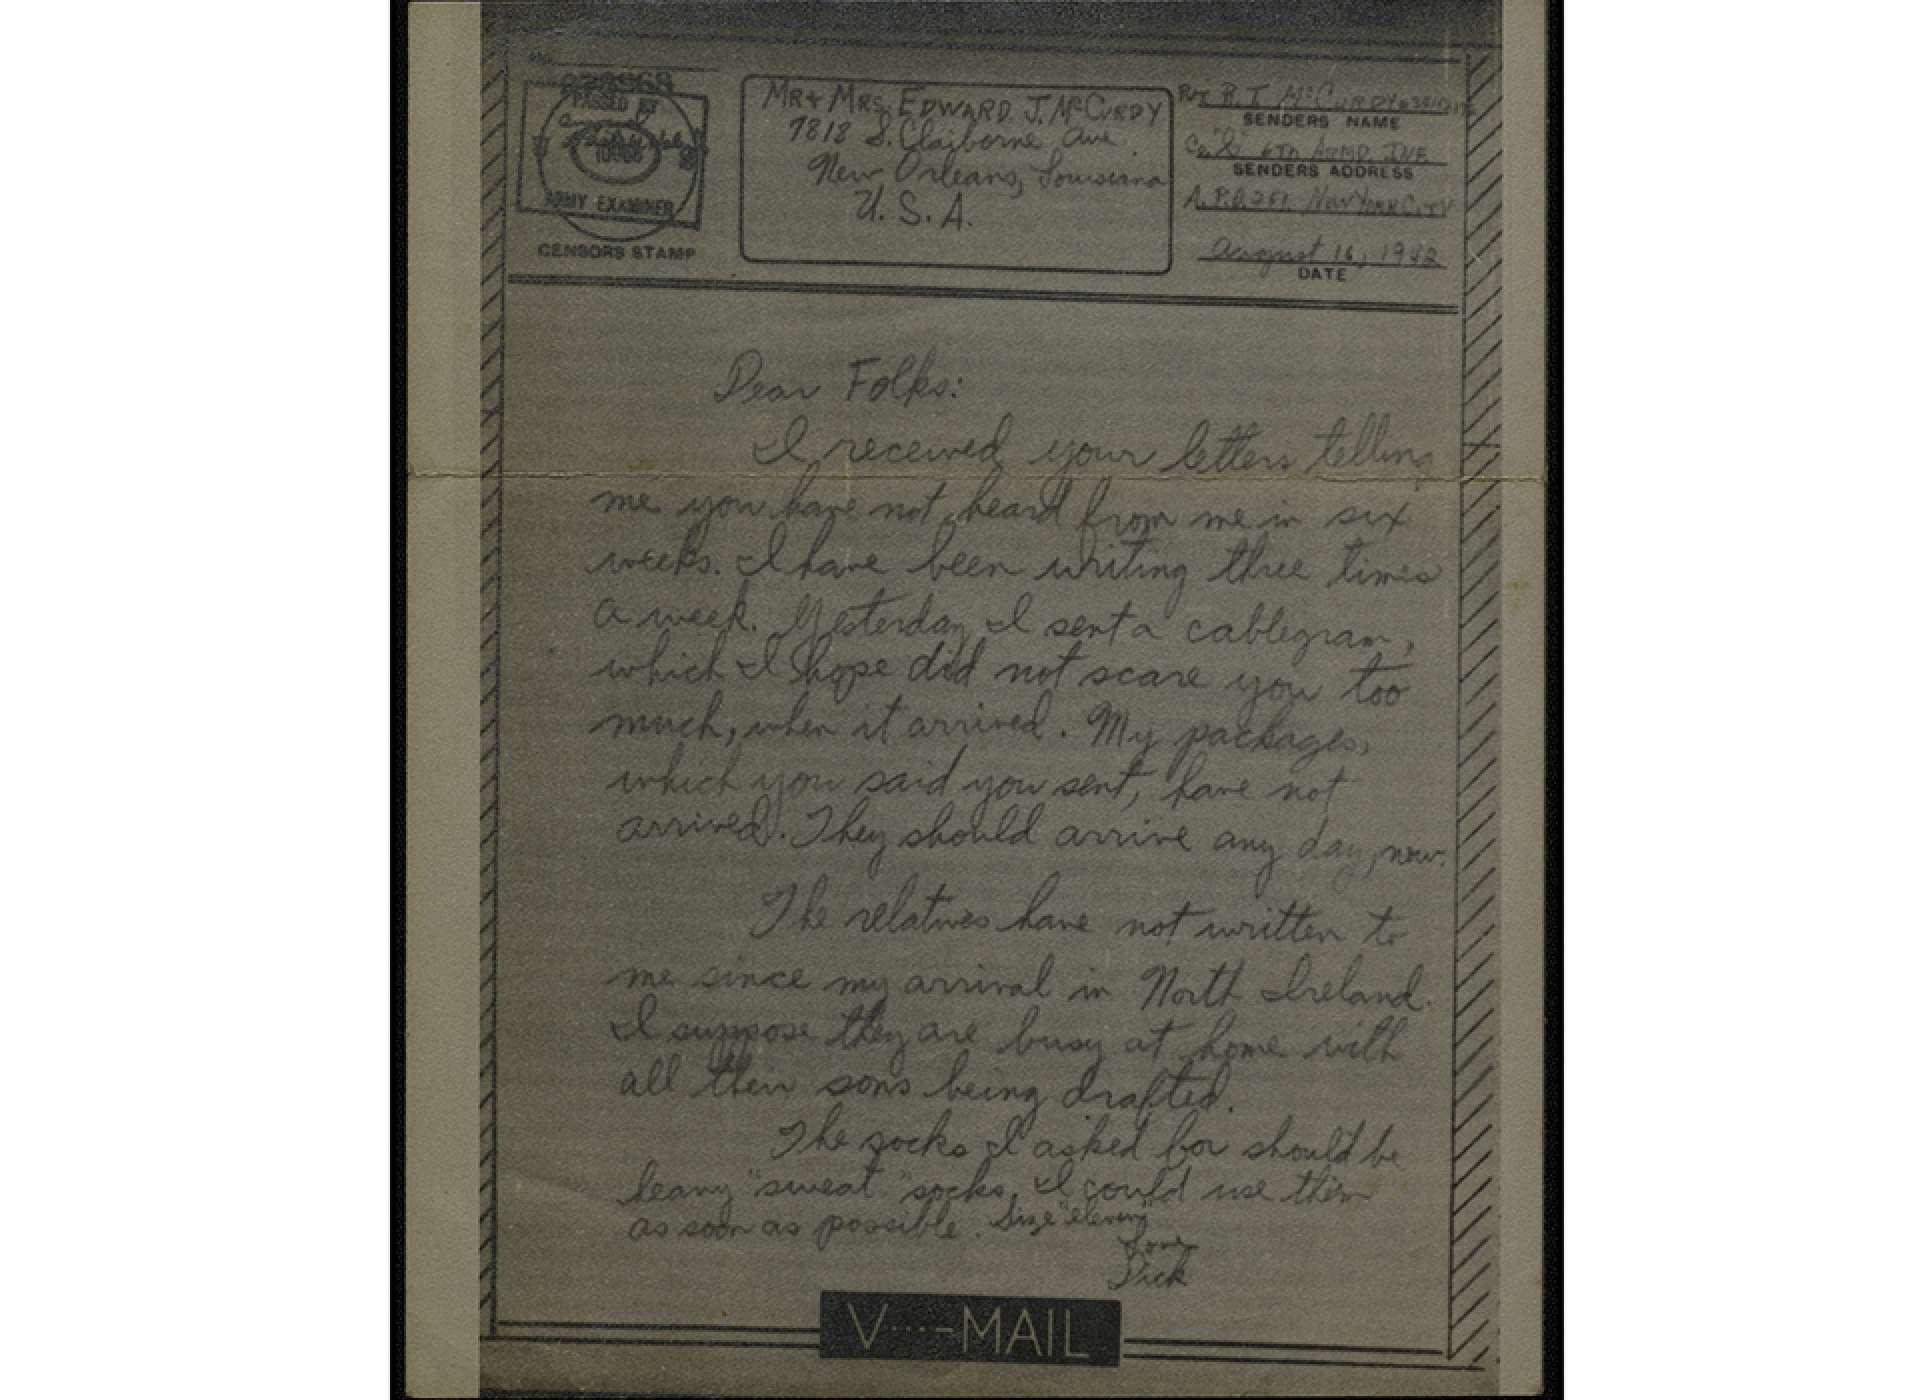 PASSED BY
ARMY EXAMINER
CENSORS STAMP
MR & MRS. EDWARD J. McCURDY
7818 S. Claiborne Ave.
New Orleans, Louisiana
U. S. A.
Pvt. R. J. McCURDY
SENDERS NAME
6TH ARMD. INF.
SENDERS ADDRESS
A. P. O. 251 NEW YORK CITY
August 16, 1942
DATE
Dear Folks:
I received your letters telling
me you have not heard from me in six
weeks. I have been writing three times
a week. Yesterday I sent a cablegram,
which I hope did not scare you too
much, when it arrived. My packages,
which you said you sent, have not
arrived. They should arrive any day, now.
The relatives have not written to
me since my arrival in North Ireland.
I suppose they are busy at home with
all their sons being drafted.
The socks I asked for should be
heavy "sweat" socks. I could use them
as soon as possible. Size "eleven"
Love
Dick
V···-MAIL